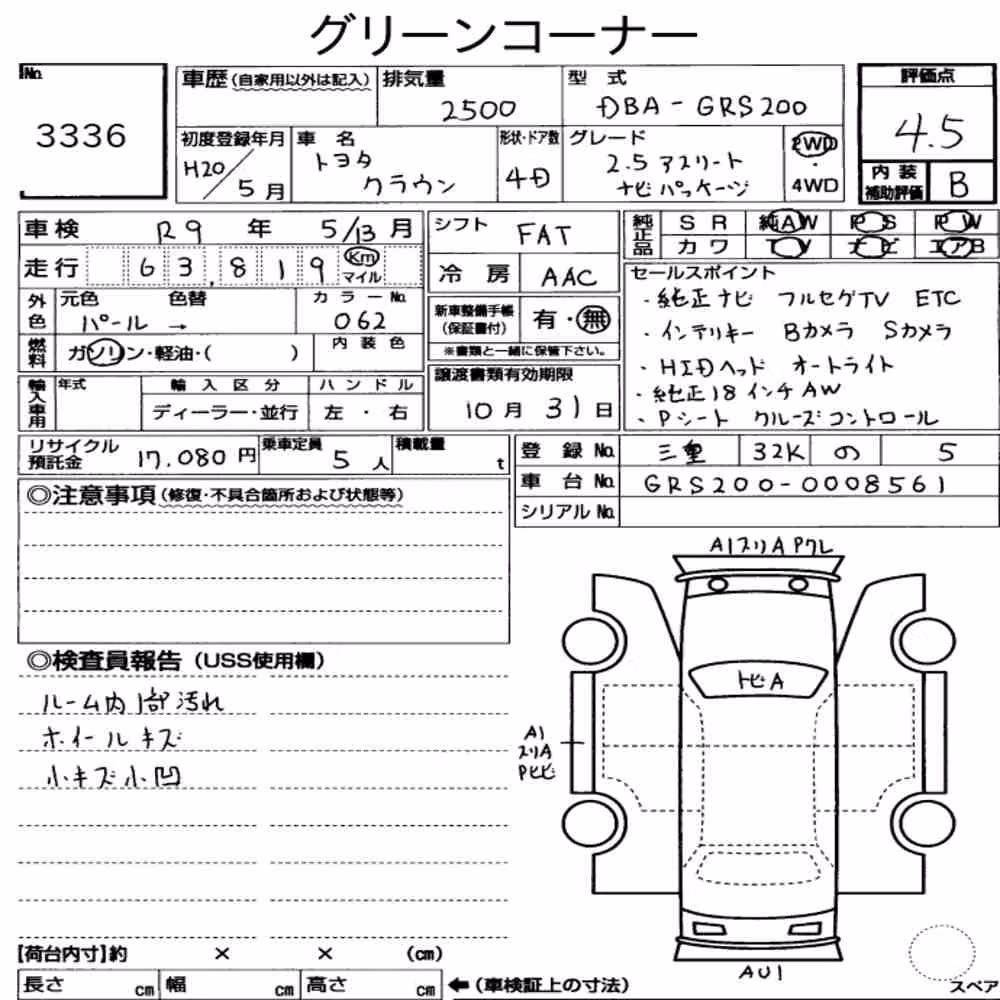 グリーンコーナー
No.
3336
車歴(自家用以外は記入)
排気量
2500
型式
DBA-GRS200
評価点
4.5
初度登録年月
H20/5月
車名
トヨタ
クラウン
形状・ドア数
4D
グレード
2.5 アスリート
ナビパッケージ
2WD
・
4WD
内装
補助評価
B
車検 R9年 5/13月
走行 63,819 Km
マイル
シフト FAT
冷房 AAC
純正品
SR 純AW PS PW
カワ TV ナビ エアB
外色
元色 色替
パール →
カラーNo.
062
燃料
ガソリン・軽油・( )
内装色
新車整備手帳
(保証書付)
有・無
※書類と一緒に保管下さい。
セールスポイント
・純正ナビ フルセグTV ETC
・インテリキー Bカメラ Sカメラ
・HIDヘッド オートライト
・純正18インチAW
・Pシート クルーズコントロール
輸入車用
年式
輸入区分
ディーラー・並行
ハンドル
左・右
譲渡書類有効期限
10月31日
リサイクル
預託金
17.080円
乗車定員
5人
積載量
t
登録No. 三重 32K の 5
車台No. GRS200-0008561
シリアルNo.
◎注意事項(修復・不具合箇所および状態等)
◎検査員報告(USS使用欄)
ルーム内1部汚れ
ホイールキズ
小キズ小凹
A1スリA Pワレ
トビA
A1
スリA
Pヒビ
AU1
スペア
【荷台内寸】約 × × (cm)
長さ cm 幅 cm 高さ cm
←(車検証上の寸法)